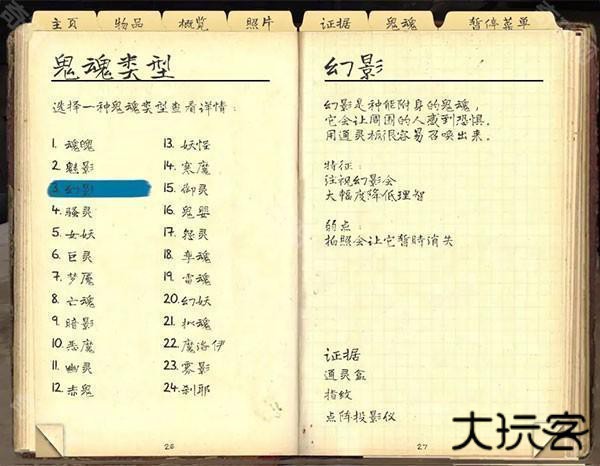 主页 物品 概览 照片 证据 鬼魂 暂停菜单
鬼魂类型
选择一种鬼魂类型查看详情：
1. 魂魄
2. 魅影
3. 幻影
4. 骚灵
5. 女妖
6. 巨灵
7. 梦魇
8. 亡魂
9. 暗影
10. 恶魔
11. 幽灵
12. 赤鬼
13. 妖怪
14. 寒魔
15. 御灵
16. 鬼婴
17. 怨灵
18. 孪魂
19. 雷魂
20. 幻妖
21. 拟魂
22. 魔洛伊
23. 雾影
24. 刹耶
26
幻影
幻影是种能附身的鬼魂，
它会让周围的人感到恐惧。
用通灵板很容易召唤出来。
特征：
注视幻影会
大幅度降低理智
弱点：
拍照会让它暂时消失
证据
通灵盒
指纹
点阵投影仪
27
大玩客